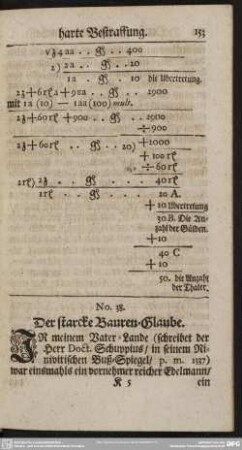 harte Bestraffung. 153
√ʒ4aa .. gß .. 400
2) 2a .. gß .. 20
1a . gß . 10 die Ubertretung.
2ʒ + 6rl a + 9ra .. gß .. 1900
mit 1a (10) — 1aa (100) mult.
2ʒ + 60rl + 900 .. gß .. 1900
÷ 900
2ʒ + 60rl .. gß .. 20) + 1000
+ 100rl
÷ 60rl
2rl) 2ʒ .. gß .. 40rl
1rl . gß .. 20 A.
+ 10 Ubertretung
30 B. Die An-
zahl der Gülden.
+ 10
40 C
+ 10
50. die Anzahl
der Thaler.
No. 38.
Der starcke Bauren-Glaube.
IN meinem Vater-Lande (schreibet der
Herr Doct. Schuppius / in seinem Ni-
nivitischen Buß-Spiegel / p. m. 137)
war einsmahls ein vornehmer reicher Edelmann /
K 5 ein